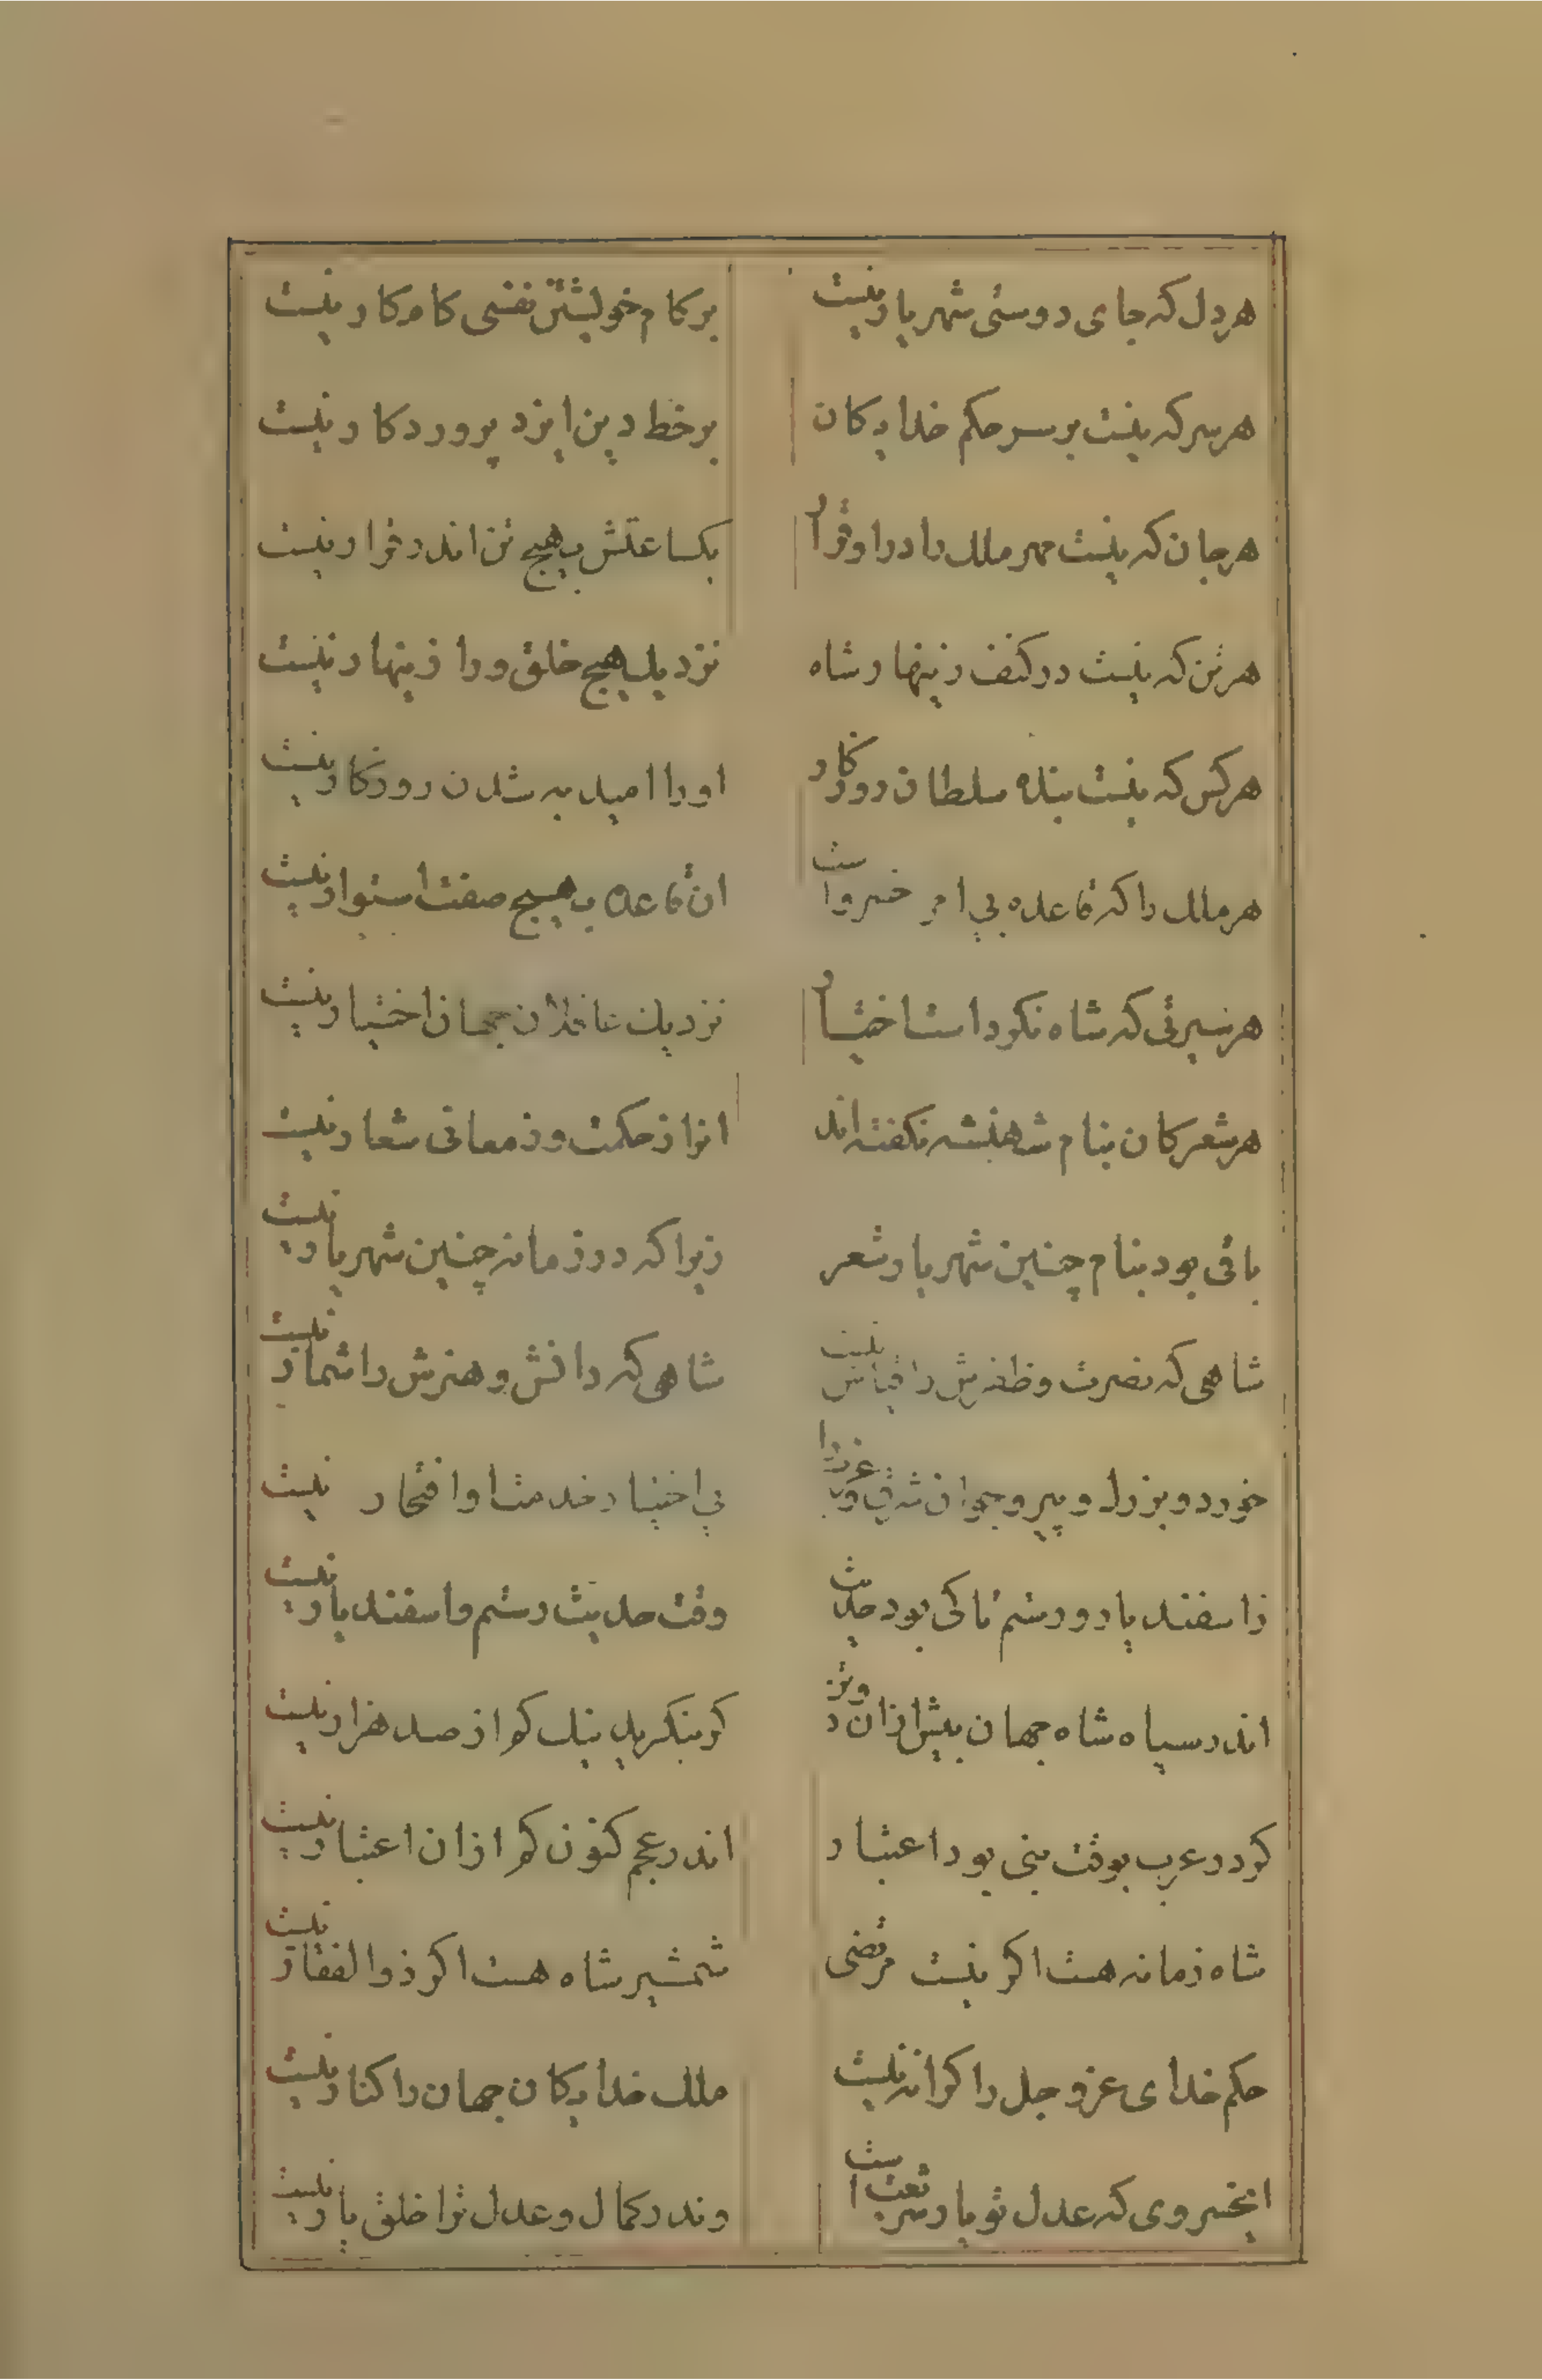 هر دل که جای دوستی شهریار نیست
بر کام خویشتن نفسی کامکار نیست
هر سر که نیست بر سر حکم خدایکان
بر خط دین ایزد پروردکار نیست
هر جان که نیست مهر ملک را درا و قرار
یکساعتش بهیچ تن اندر قرار نیست
هر تن که نیست در کنف زینهار شاه
نزدیک هیچ خلق ورا زینهار نیست
هر کس که نیست بنده سلطان روزکار
او را امید به شدن روزکار نیست
هر ملک را که قاعده بی امر خسرو است
ان قاعده بهیچ صفت استوار نیست
هر سیرتی که شاه نکرد است اختیار
نزدیک عاقلان جهان اختیار نیست
هر شعر کان بنام شهنشه نکفته اند
انرا ز حکمت و ز معانی شعار نیست
باقی بود بنام چنین شهریار شعر
زیرا که در زمانه چنین شهریار نیست
شاهی که نصرت و ظفرش را قیاس نیست
شاهی که دانش و هنرش را شمار نیست
خورد و بزرک و پیر و جوان شرق و غرب را
بی اختیار خدمت او افتخار نیست
ز اسفندیار و رستم تا کی بود حدیث
وقت حدیث رستم و اسفندیار نیست
اندر سپاه شاه جهان بیش ازان دو تن
کر بنکرید نیک کم از صد هزار نیست
کر در عرب بوقت نبی بود اعتبار
اندر عجم کنون کم ازان اعتبار نیست
شاه زمانه هست اکر نیست مرتضی
شمشیر شاه هست اکر ذوالفقار نیست
حکم خدای عز و جل را کرانه نیست
ملک خدایکان جهان را کنار نیست
ایخسروی که عدل تو یار شریعت است
وندر کمال و عدل ترا خلق یار نیست